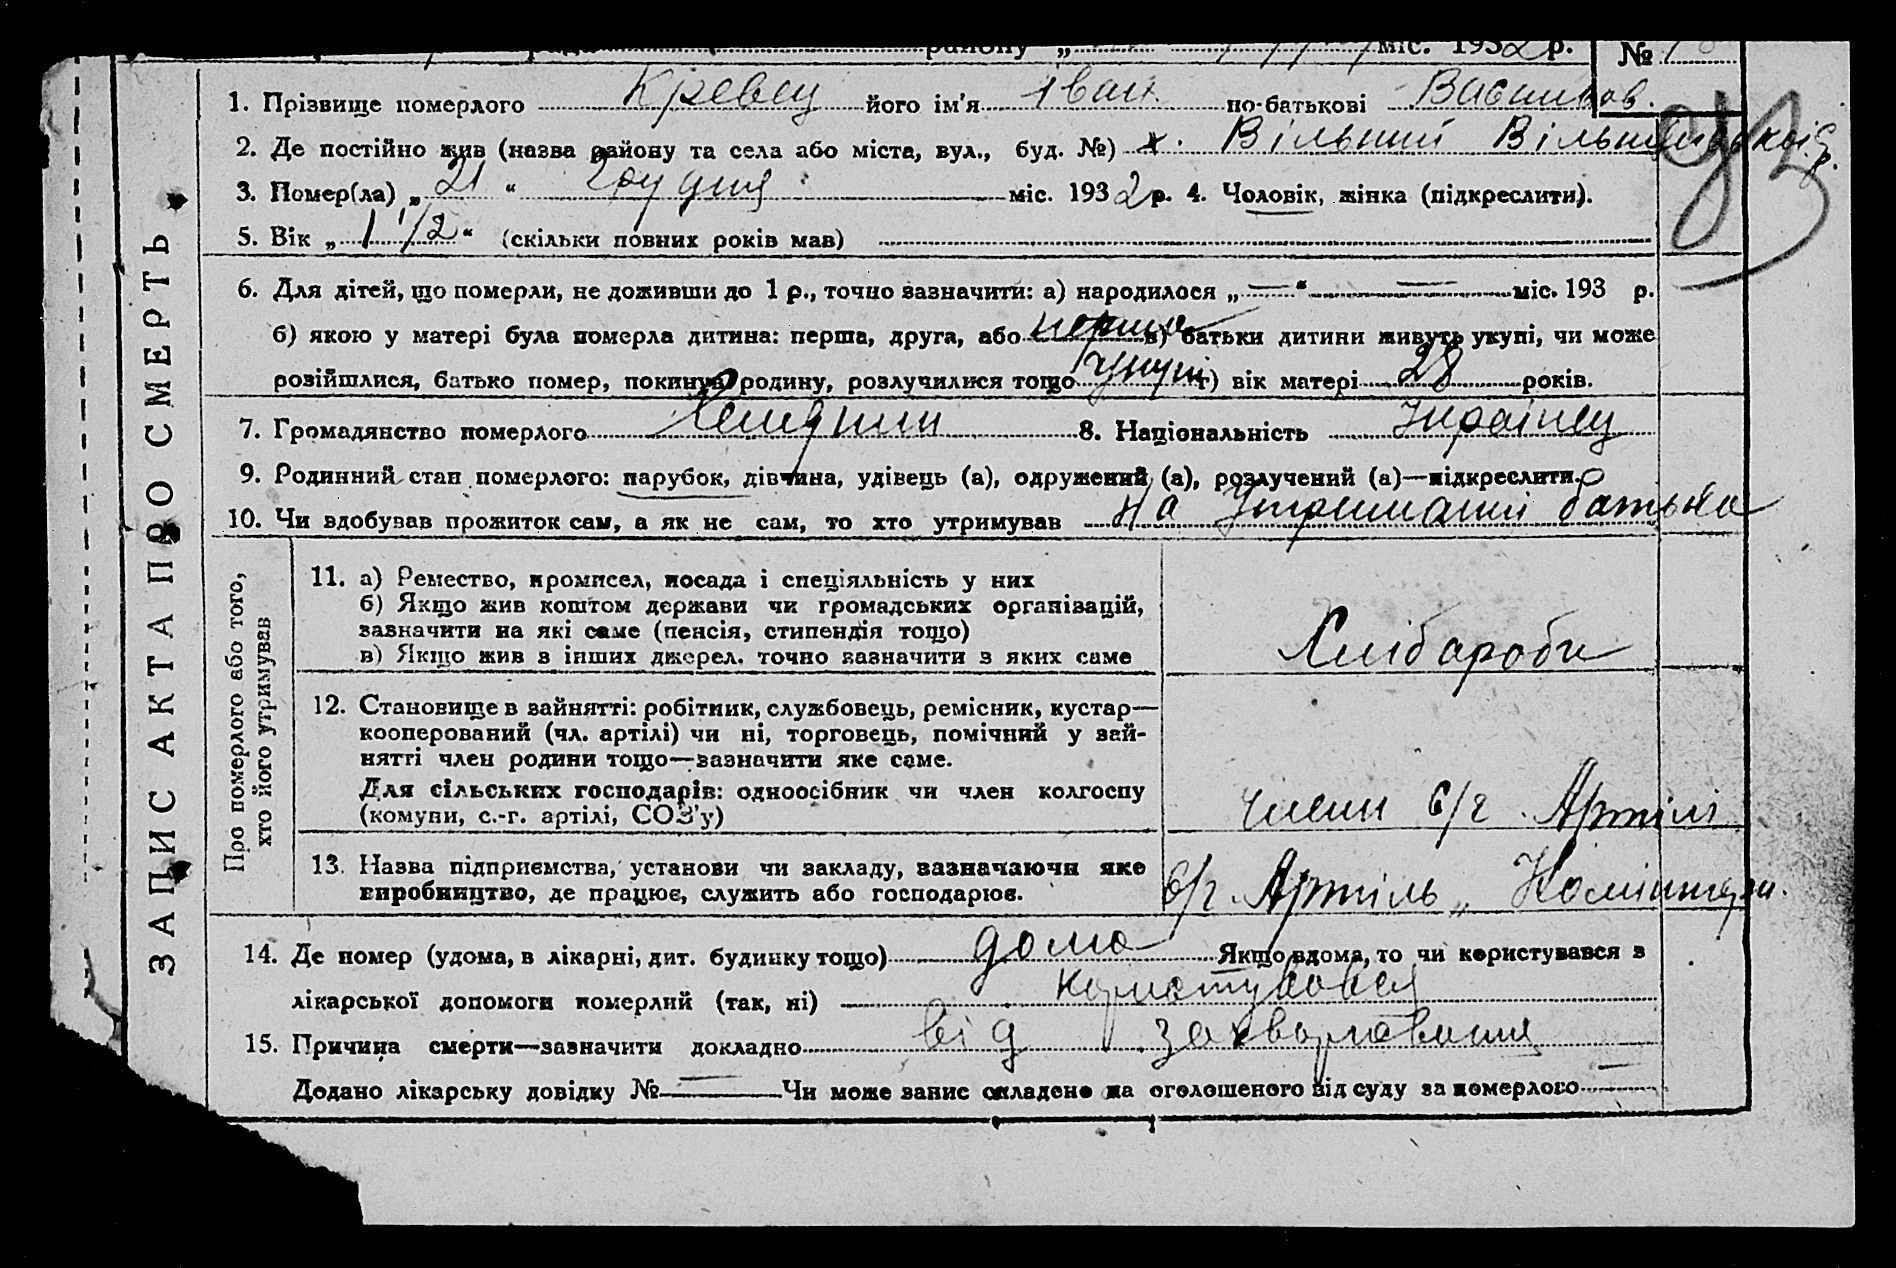 району „ міс. 1932 р. №
1. Прізвище померлого Кревец його ім'я Іван по-батькові Васильов.
2. Де постійно жив (назва району та села або міста, вул., буд. №) х. Вільний Вільшанської с/р.
3. Помер(ла) „21“ Грудня міс. 1932 р. 4. Чоловік, жінка (підкреслити).
5. Вік „1 1/2“ (скільки повних років мав)
6. Для дітей, що померли, не доживши до 1 р., точно зазначити: а) народилося „—“ — міс. 193 р.
б) якою у матері була померла дитина: перша, друга, або перша в) батьки дитини живуть укупі, чи може
розійшлися, батько помер, покинув родину, розлучилися тощо укупі г) вік матері 28 років.
7. Громадянство померлого 8. Національність Українец
9. Родинний стан померлого: парубок, дівчина, удівець (а), одружений (а), розлучений (а)—підкреслити.
10. Чи здобував прожиток сам, а як не сам, то хто утримував На Утриманні батька
ЗАПИС АКТА ПРО СМЕРТЬ
Про померлого або того,
хто його утримував
11. а) Ремество, промисел, посада і спеціяльність у них
б) Якщо жив коштом держави чи громадських організацій,
зазначити на які саме (пенсія, стипендія тощо)
в) Якщо жив з інших джерел, точно зазначити з яких саме
Хлібароби
12. Становище в зайнятті: робітник, службовець, ремісник, кустар—
кооперований (чл. артілі) чи ні, торговець, помічний у зай-
нятті член родини тощо—зазначити яке саме.
Для сільських господарів: одноосібник чи член колгоспу
(комуни, с.-г. артілі, СОЗ'у)
члени с/г Артілі
13. Назва підприємства, установи чи закладу, зазначаючи яке
виробництво, де працює, служить або господарює.
с/г Артіль „Комінтерн.
14. Де помер (удома, в лікарні, дит. будинку тощо) дома Якщо вдома, то чи користувався з
лікарської допомоги померлий (так, ні) користувався
15. Причина смерти—зазначити докладно від захворювання
Додано лікарську довідку № — Чи може запис складено на оголошеного від суду за померлого —